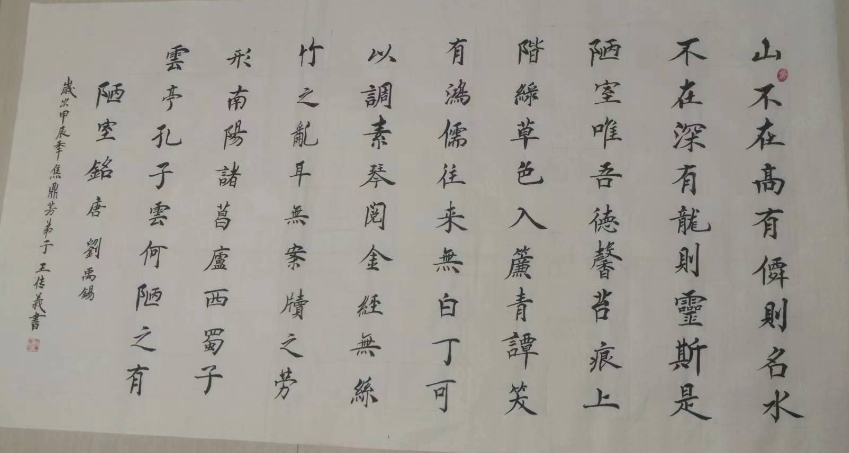 山不在高有僊則名水
不在深有龍則靈斯是
陋室唯吾德馨苔痕上
階綠草色入簾青譚笑
有鴻儒往来無白丁可
以調素琴閱金經無絲
竹之亂耳無案牘之勞
形南陽諸葛廬西蜀子
雲亭孔子雲何陋之有
陋室銘 唐 劉禹錫
歲次甲辰年焦鼎芳弟子 王传義書